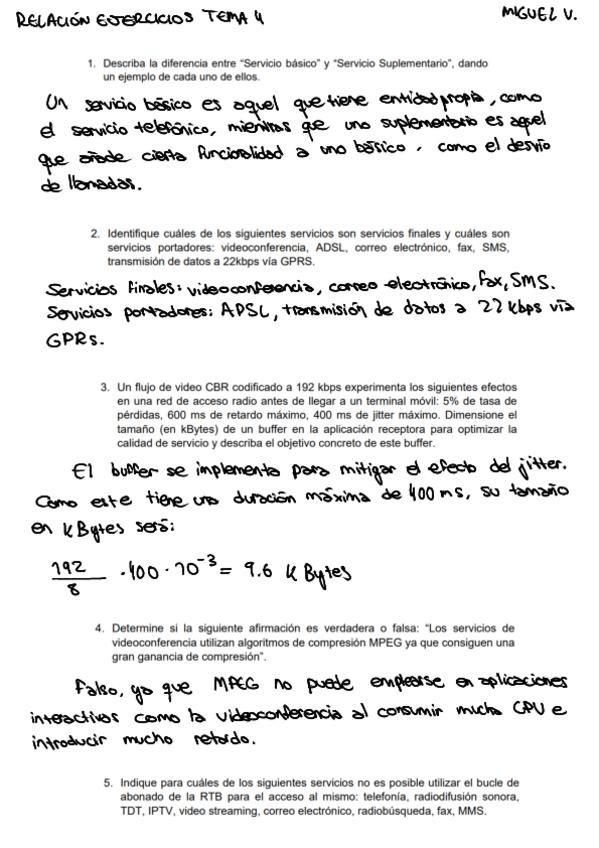 RELACIÓN EJERCICIOS TEMA 4
MIGUEL V.
1. Describa la diferencia entre "Servicio básico" y "Servicio Suplementario", dando
un ejemplo de cada uno de ellos.
Un servicio básico es aquel que tiene entidad propia, como
el servicio telefónico, mientras que uno suplementario es aquel
que añade cierta funcionalidad a uno básico, como el desvío
de llamadas.
2. Identifique cuáles de los siguientes servicios son servicios finales y cuáles son
servicios portadores: videoconferencia, ADSL, correo electrónico, fax, SMS,
transmisión de datos a 22kbps vía GPRS.
Servicios finales: videoconferencia, correo electrónico, fax, SMS.
Servicios portadores: ADSL, transmisión de datos a 22 kbps vía
GPRS.
3. Un flujo de video CBR codificado a 192 kbps experimenta los siguientes efectos
en una red de acceso radio antes de llegar a un terminal móvil: 5% de tasa de
pérdidas, 600 ms de retardo máximo, 400 ms de jitter máximo. Dimensione el
tamaño (en kBytes) de un buffer en la aplicación receptora para optimizar la
calidad de servicio y describa el objetivo concreto de este buffer.
El buffer se implementa para mitigar el efecto del jitter.
Como este tiene una duración máxima de 400 ms, su tamaño
en kBytes será:
192/8 · 400 · 10⁻³ = 9.6 kBytes
4. Determine si la siguiente afirmación es verdadera o falsa: "Los servicios de
videoconferencia utilizan algoritmos de compresión MPEG ya que consiguen una
gran ganancia de compresión".
Falso, ya que MPEG no puede emplearse en aplicaciones
interactivas como la videoconferencia al consumir mucha CPU e
introducir mucho retardo.
5. Indique para cuáles de los siguientes servicios no es posible utilizar el bucle de
abonado de la RTB para el acceso al mismo: telefonía, radiodifusión sonora,
TDT, IPTV, video streaming, correo electrónico, radiobúsqueda, fax, MMS.